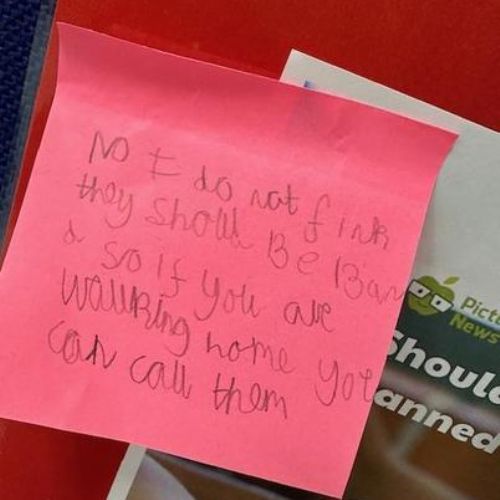 No I do not fink
they Should Be Ban
d so if you are
wallking home you
can call them
Pict
News
Shoul
anned